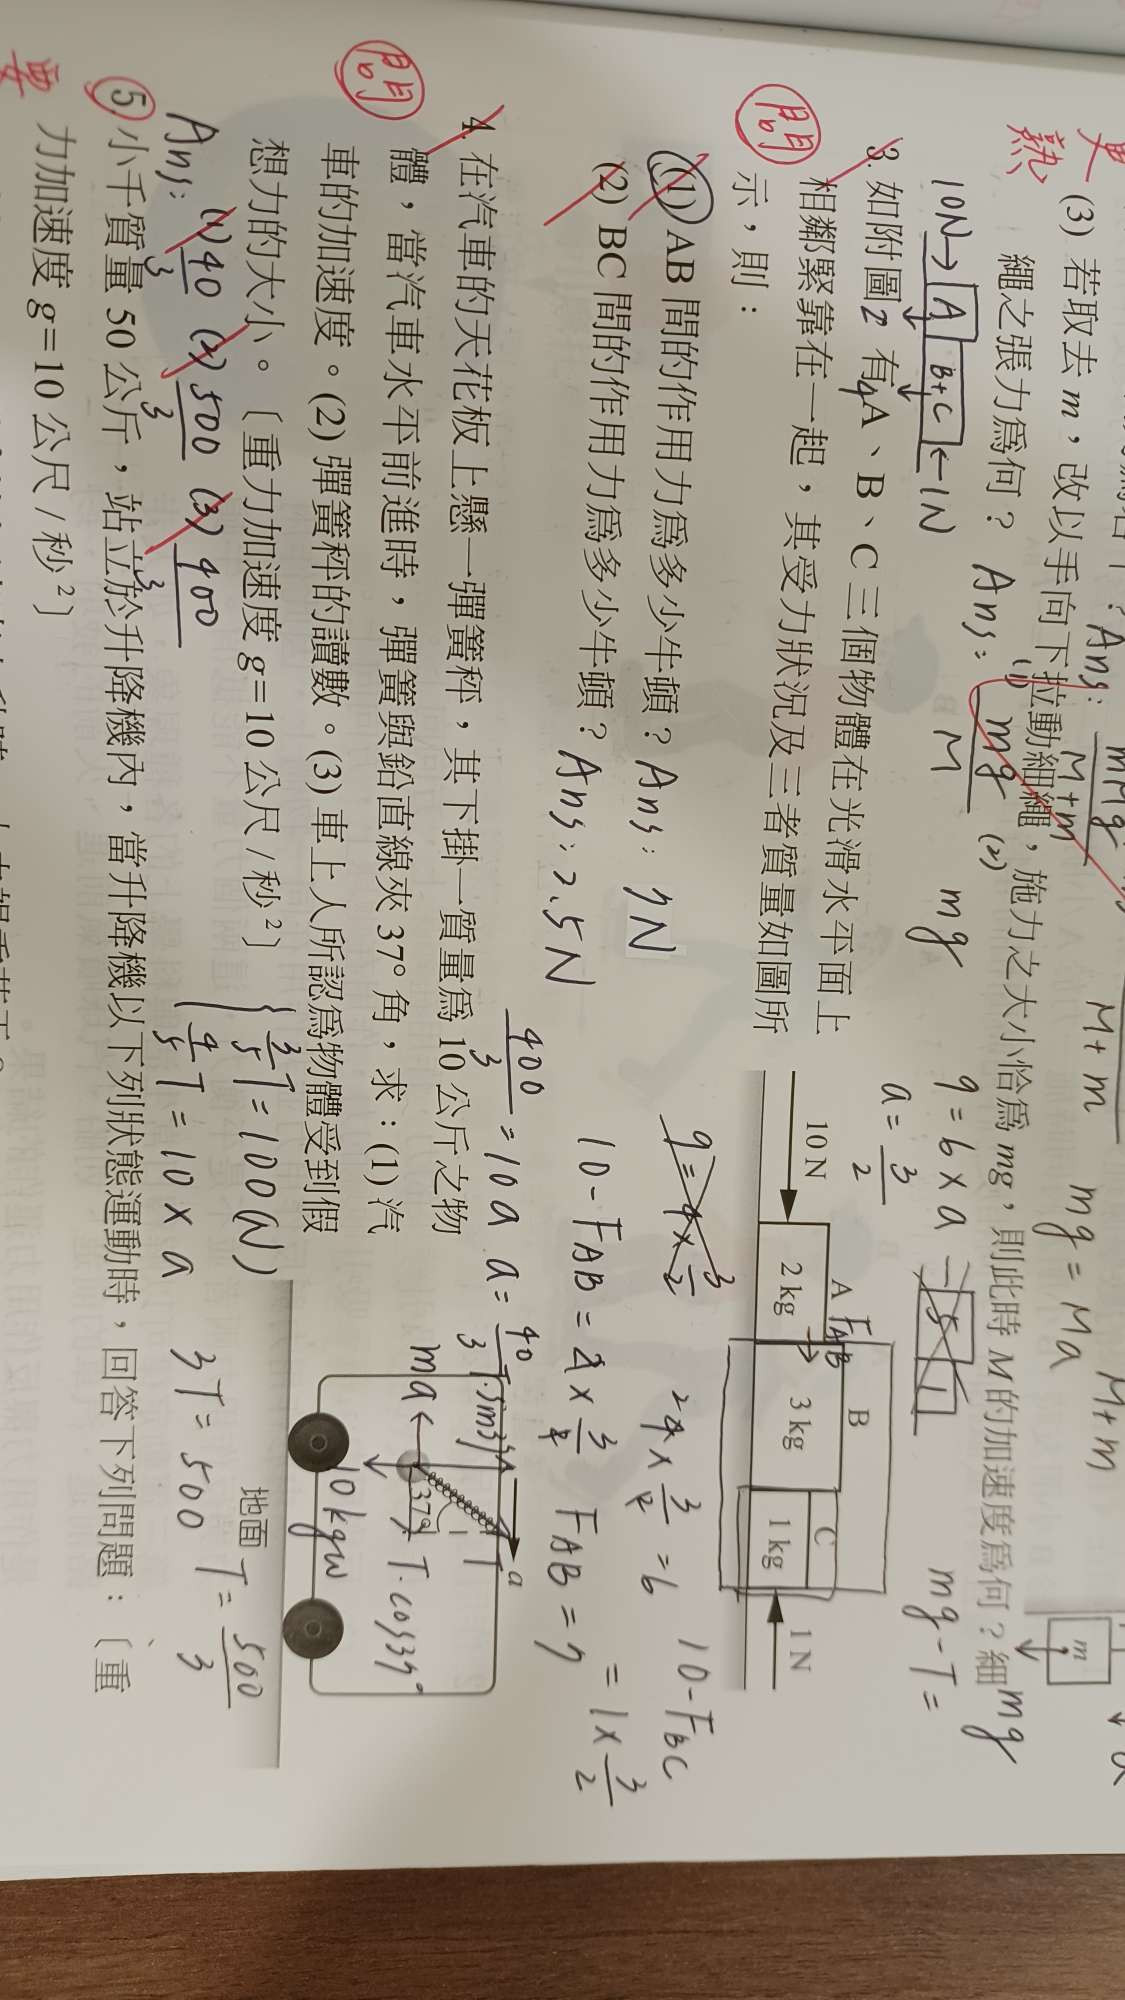 (3) 若取去 m，改以手向下拉動細繩，施力之大小恰為 mg，則此時 M 的加速度為何？細
繩之張力為何？ Ans: (1) mg/M (2) mg
mg = Ma
9 = 6 × a
a = 3/2
10N→ A B+C ←1N
3. 如附圖 有 A、B、C 三個物體在光滑水平面上
相鄰緊靠在一起，其受力狀況及三者質量如圖所
示，則：
(1) AB 間的作用力為多少牛頓？ Ans: 7N
(2) BC 間的作用力為多少牛頓？ Ans: 2.5N
10 N
A
2 kg
FAB
B
3 kg
C
1 kg
1 N
9 = 4 × 3/2
10 - FAB = 2 × 3/2 FAB = 7
4 × 3/2 = 6
10 - FBC
= 1 × 3/2
問
4. 在汽車的天花板上懸一彈簧秤，其下掛一質量為 10 公斤之物
體，當汽車水平前進時，彈簧與鉛直線夾 37° 角，求：(1) 汽
車的加速度。(2) 彈簧秤的讀數。(3) 車上人所認為物體受到假
想力的大小。〔重力加速度 g＝10 公尺／秒²〕
問
400/3 = 10a a = 40/3
Ans: (1) 40/3 (2) 500/3 (3) 400/3
3/5 T = 100 (N)
4/5 T = 10 × a
3T = 500 T = 500/3
a
T
37°
ma
T·cos37°
10kgw
地面
5. 小千質量 50 公斤，站立於升降機內，當升降機以下列狀態運動時，回答下列問題：〔重
力加速度 g＝10 公尺／秒²〕